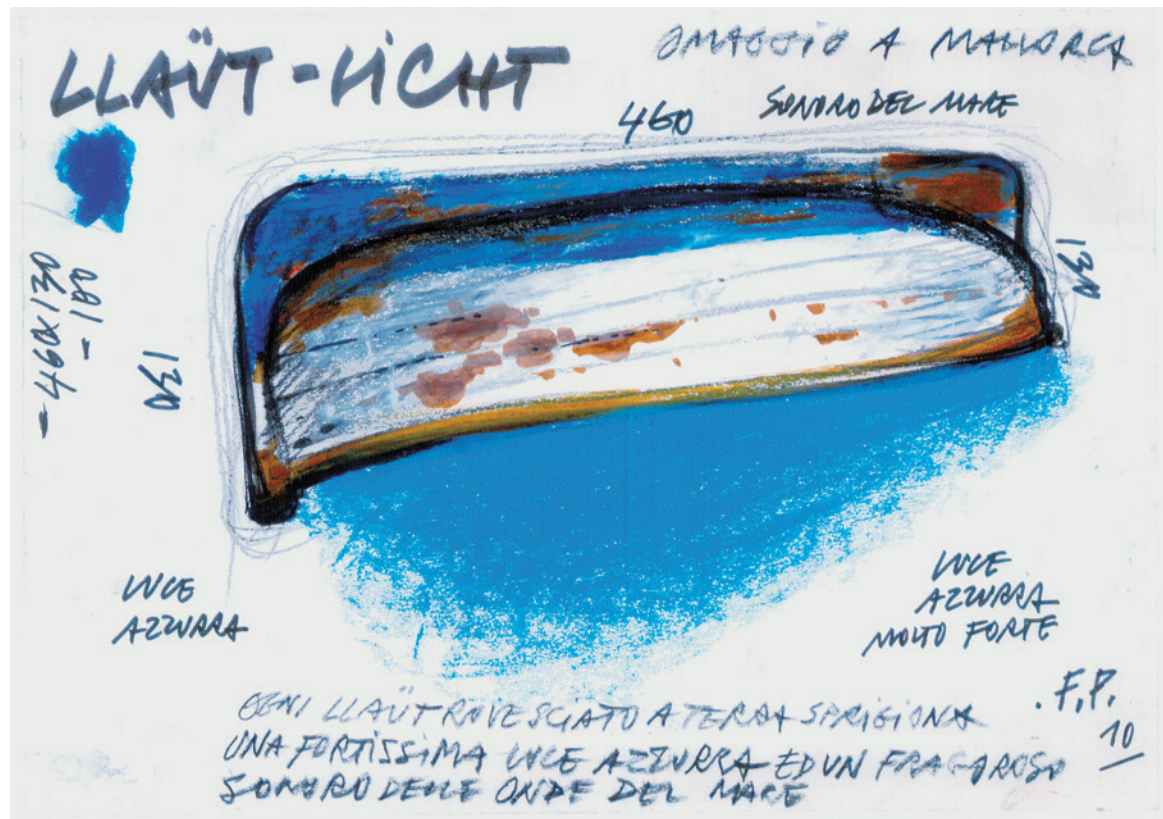 LLAÜT-LICHT
OMAGGIO A MALLORCA
SONORO DEL MARE
460
-460X130
-180
130
130
LUCE
AZZURRA
LUCE
AZZURRA
MOLTO FORTE
OGNI LLAÜT ROVESCIATO A TERRA SPRIGIONA
UNA FORTISSIMA LUCE AZZURRA ED UN FRAGOROSO
SONORO DELLE ONDE DEL MARE
.F.P.
10